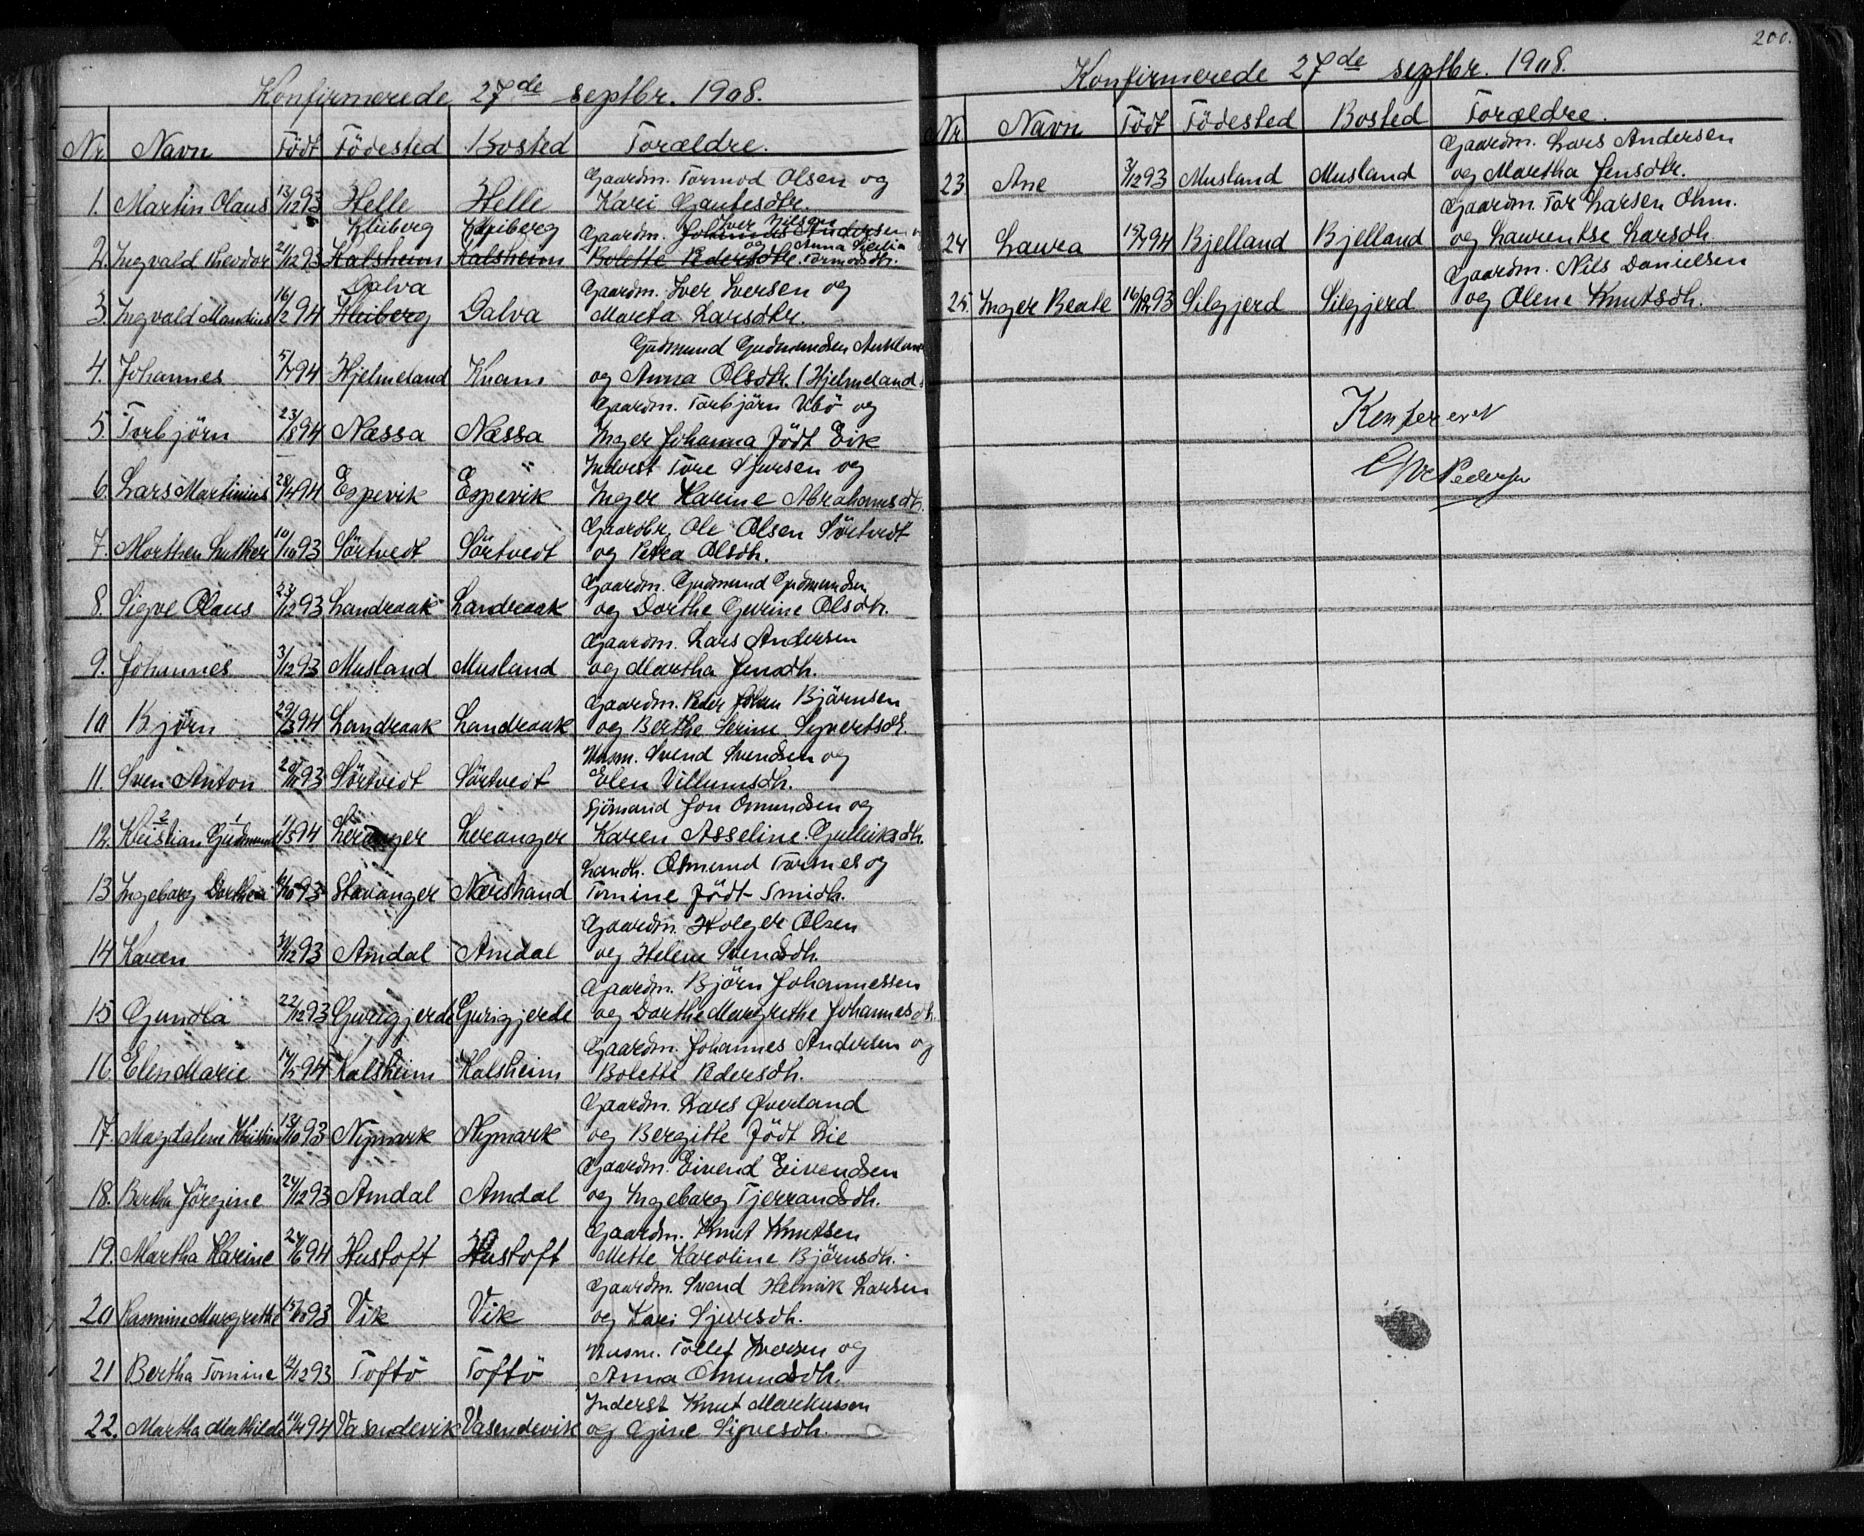 Konfirmerede 27de septbr. 1908.
Nr. Navn Født Födested Bosted Forældre.
Gaardm. Tormod Olsen og
1. Martin Olaus 13/12 93 Helle Helle Kari Gautesdtr.
Kleiberg Kleiberg Gaardm. Johannes Andersen Iver Nilsen
2. Ingvald Theodor 21/12 93 Halsheim Halsheim Bolette Pedersdtr. og Anna Tormodsdtr.
Dalva Gaardm. Iver Iversen og
3. Ingvald Mandius 16/2 94 Kleiberg Dalva Marta Larsdtr.
Gudmund Gudmundsen
4. Johannes 5/7 94 Hjelmeland Knam og Anna Olsdtr. (Hjelmeland
Gaardm. Torbjörn Ubö og
5. Torbjörn 23/8 94 Næssa Næssa Inger Johanna Født Eik
Inderst Tore Sjursen og
6. Lars Martinius 28/4 94 Espevik Espevik Inger Karine Abrahamsdtr.
Gaardbr. Ole Olsen Sörtvedt
7. Morthen Luther 10/10 93 Sörtvedt Sörtvedt og Petra Olsdtr.
Gaardm. Gudmund Gudmundsen
8. Sigve Olaus 23/12 93 Landraak Landraak og Dorthe Gurine Olsdtr.
Gaardm. Lars Andersen
9. Johannes 3/12 93 Musland Musland og Martha Jensdtr.
Gaardm. Peder Johan Björnsen
10 Bjørn 29/3 94 Landraak Landraak og Berthe Serine Syvertsdtr.
Husm. Svend Svendsen og
11. Sven Anton 93 Sörtvedt Sörtvedt Elen Villumsdtr.
Sjömand Jon Osmundsen og
12. Kristian Gudmund 1/5 94 Leranger Leranger Karen Asseline Gulliksdtr.
Landh. Osmund Tormes og
13 Ingeborg Dorthea 93 Stavanger Nærstrand Tomine Født Smidh.
Gaardm. Holger Olsen
14 Karen 93 Amdal Amdal og Helene Svendsdtr.
Gaardm. Björn Johannessen
15 Gundla 22/12 93 Gurigjerde Gurigjerde og Dorthe Margrethe Johannesdtr.
Gaardm. Johannes Andersen og
16. Elen Marie 14/5 94 Halsheim Halsheim Bolette Pedersdtr.
Gaardm. Lars Øverland
17. Magdalene Kristine 13/10 93 Nymark Nymark og Bergitte Født Lie
Gaardm. Eivend Eivendsen
18. Bertha Jörgine 24/12 93 Amdal Amdal og Ingeborg Tjerrandsdtr.
Gaardm. Knut Knutsen
19. Martha Karine 24/6 94 Hustoft Hustoft Mette Karoline Björnsdtr.
Gaardm. Svend Helmik Larsen
20 Rasmine Margrethe 93 Vik Vik og Kari Sjursdtr.
Husm. Tollef Iversen og
21 Bertha Tomine 12/12 93 Toftö Toftö Anna Omundsdtr.
Inderst Knut Markusson
22. Martha Mathilde 94 Vasendevik Vasendevik og Gine Sigvesdtr.
200.
Konfirmerede 27de septbr. 1908.
Nr Navn Født Födested Bosted Forældre.
Gaardm. Lars Andersen
23. Ane 3/12 93 Musland Musland og Martha Jensdtr.
Gaardm. Tor Larsen Ohm.
24 Laura 94 Bjelland Bjelland og Laurentse Larsdtr.
Gaardm. Nils Danielsen
25. Inger Beate 16/12 93 Silgjerd Silgjerd og Olene Knutsdtr.
Konfereret
Pedersen